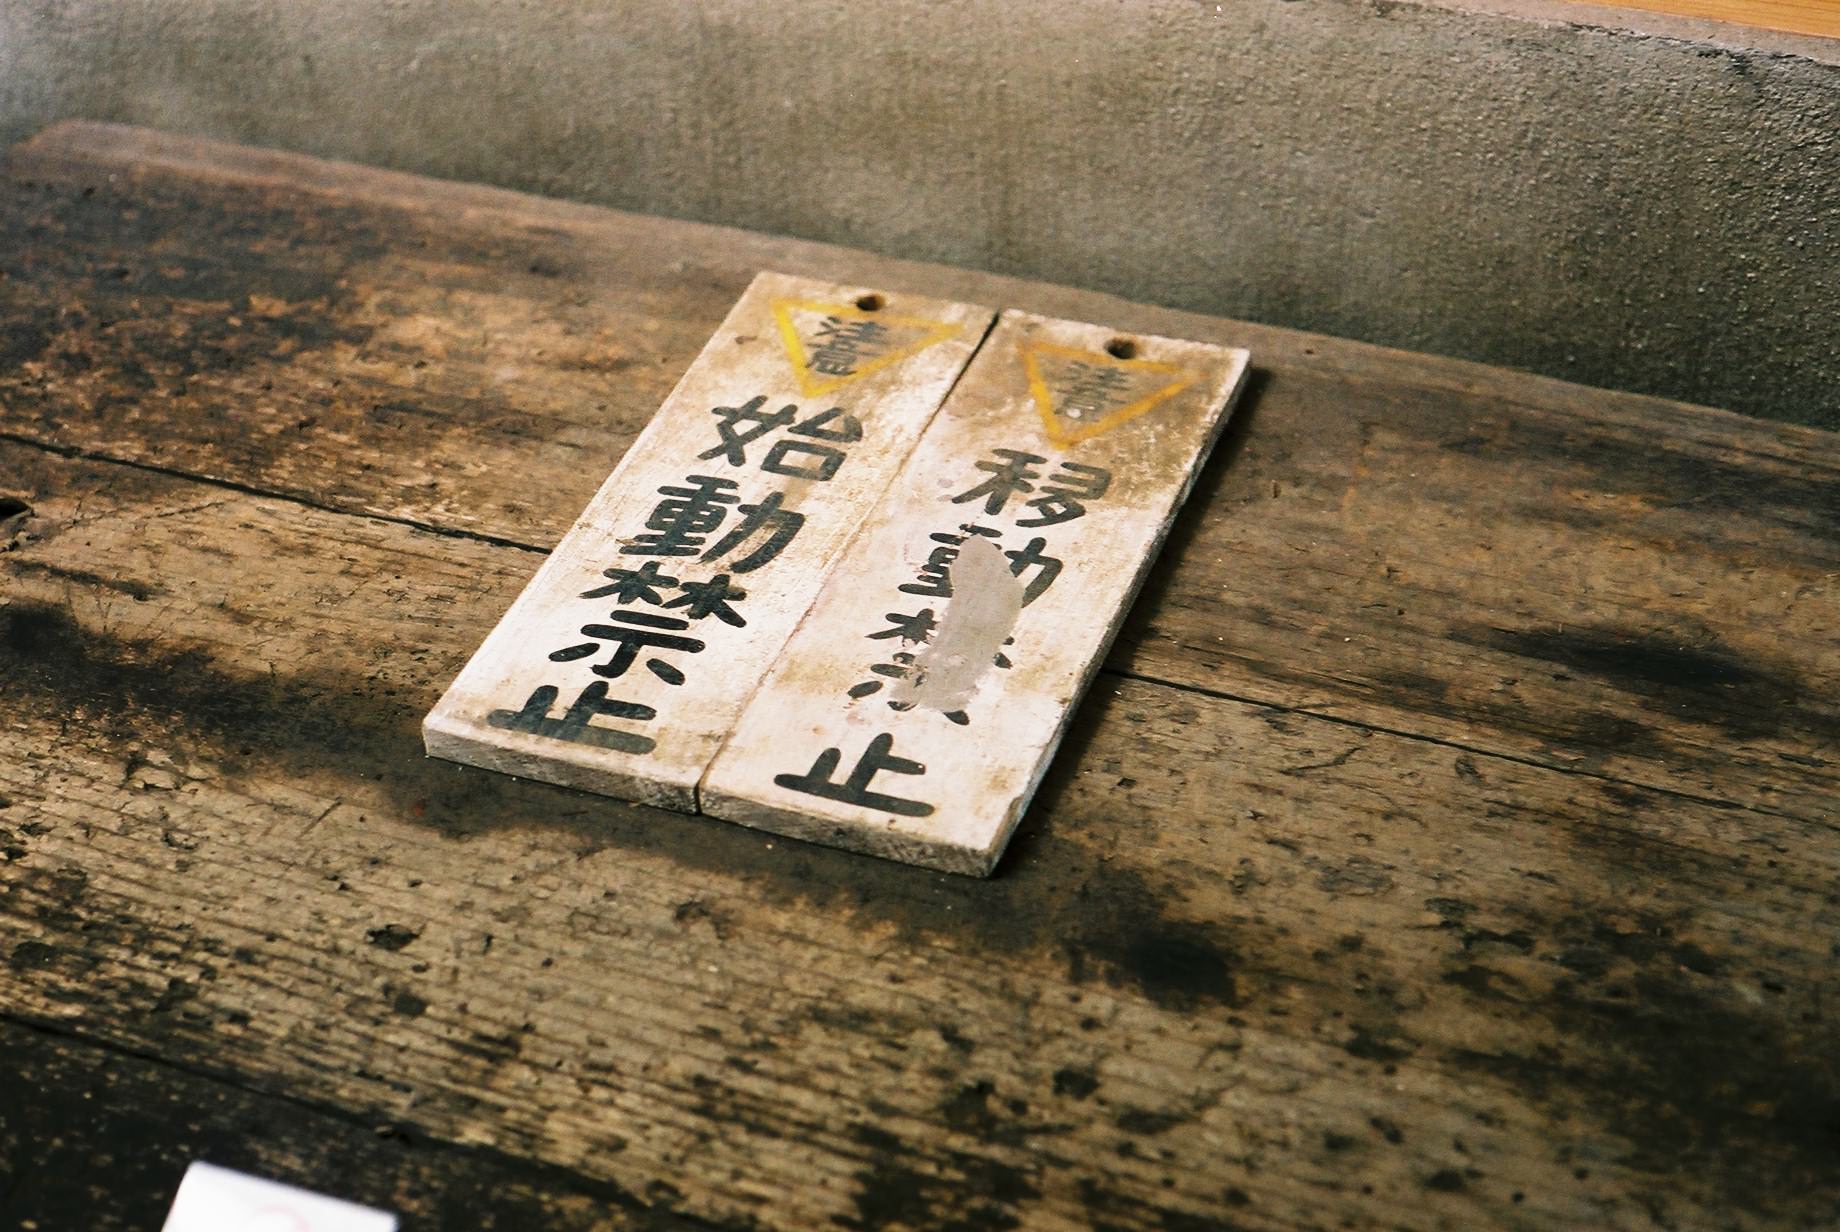 注意
始動禁止
注意
移動禁止